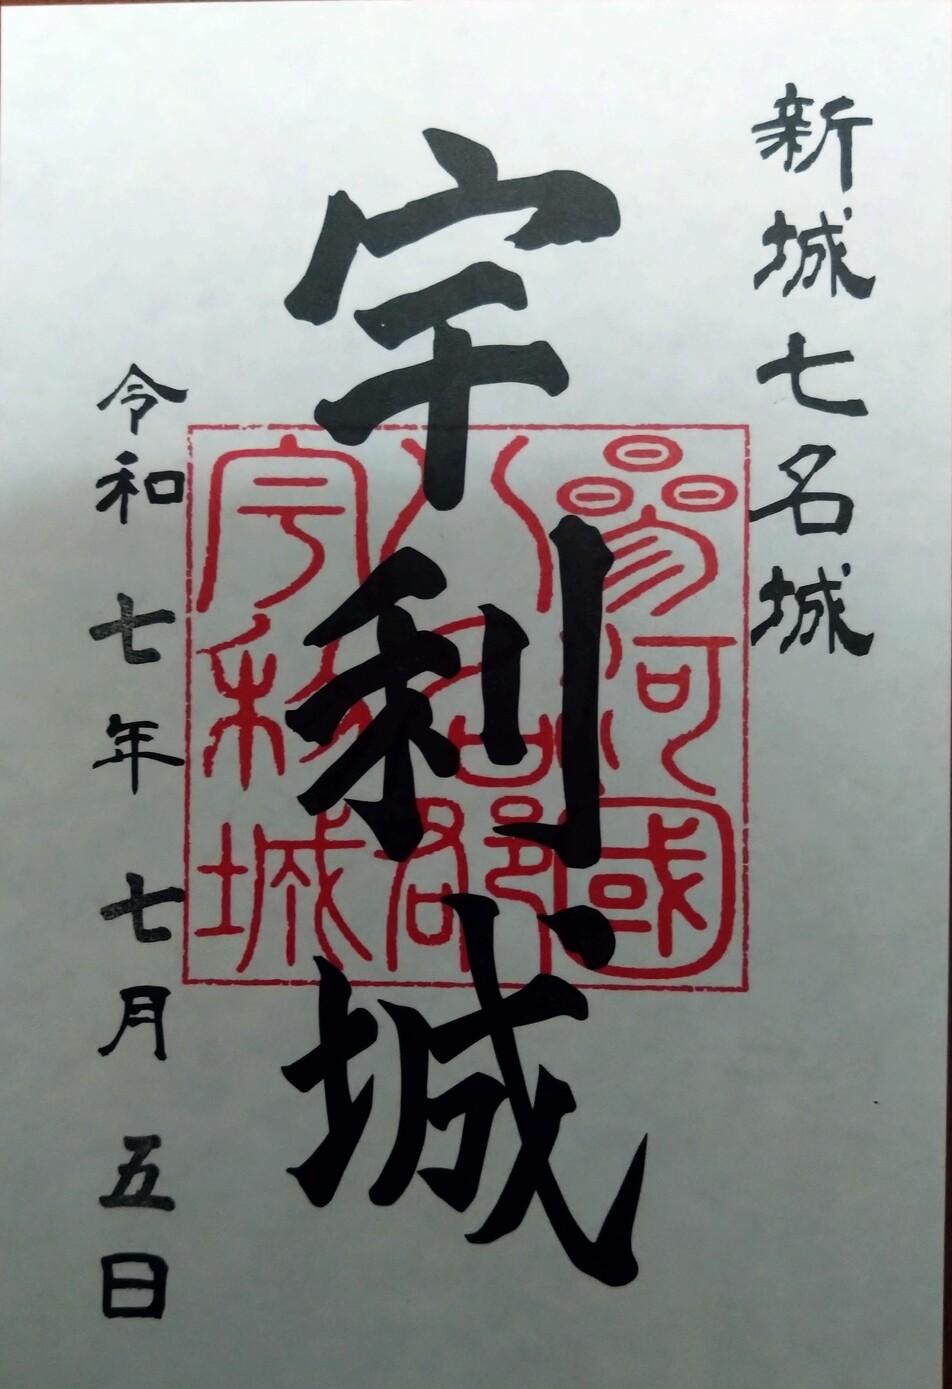 新城七名城
宇利城
参河國
八名郡
宇利城
令和七年七月五日